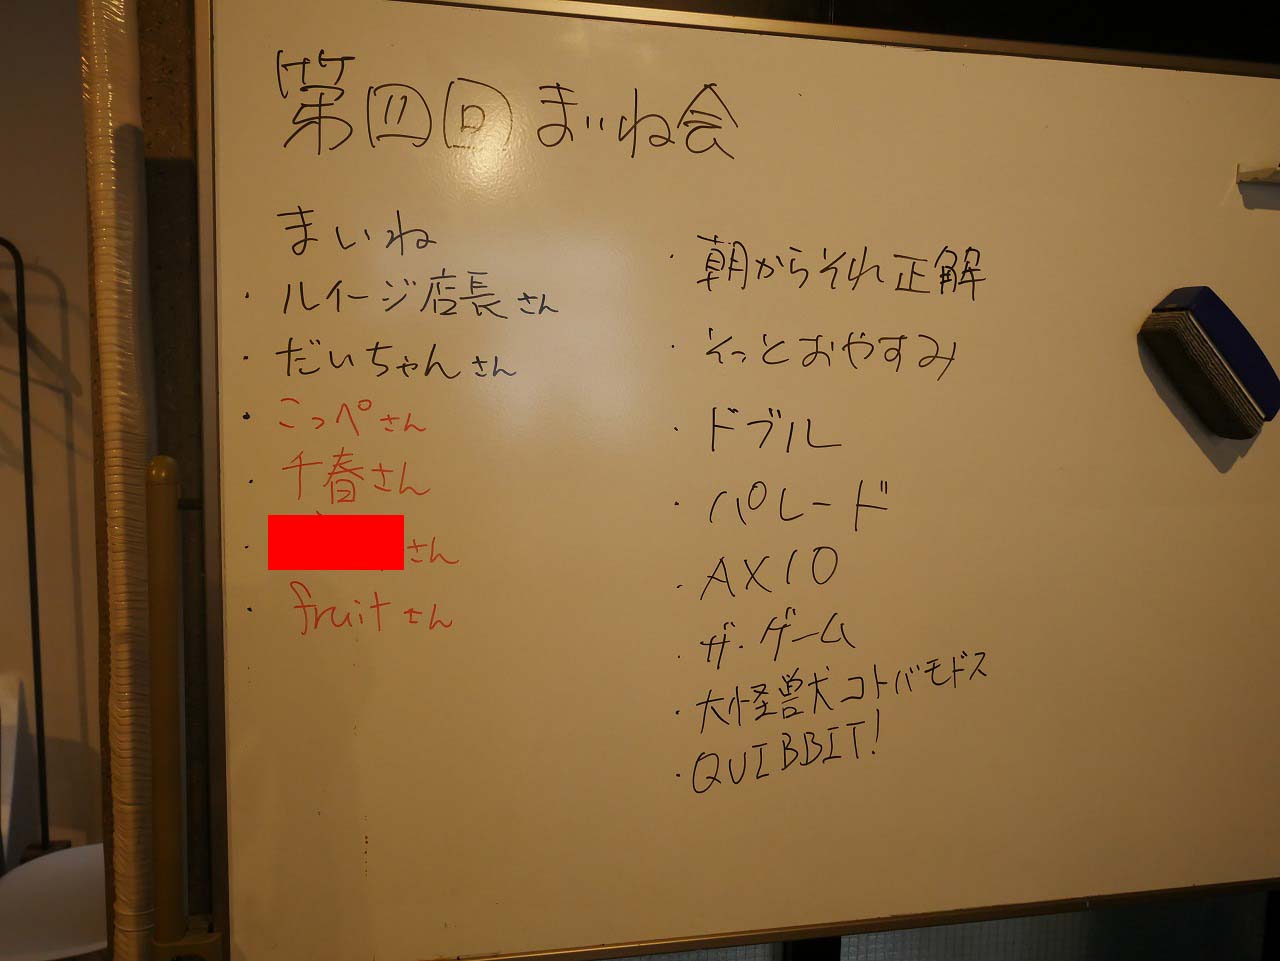 第四回まいね会
まいね
・ルイージ店長さん
・だいちゃんさん
・こっぺさん
・千春さん
・さん
・fruitさん
・朝からそれ正解
・そっとおやすみ
・ドブル
・パレード
・AXIO
・ザ・ゲーム
・大怪獣コトバモドス
・QUIBBIT!